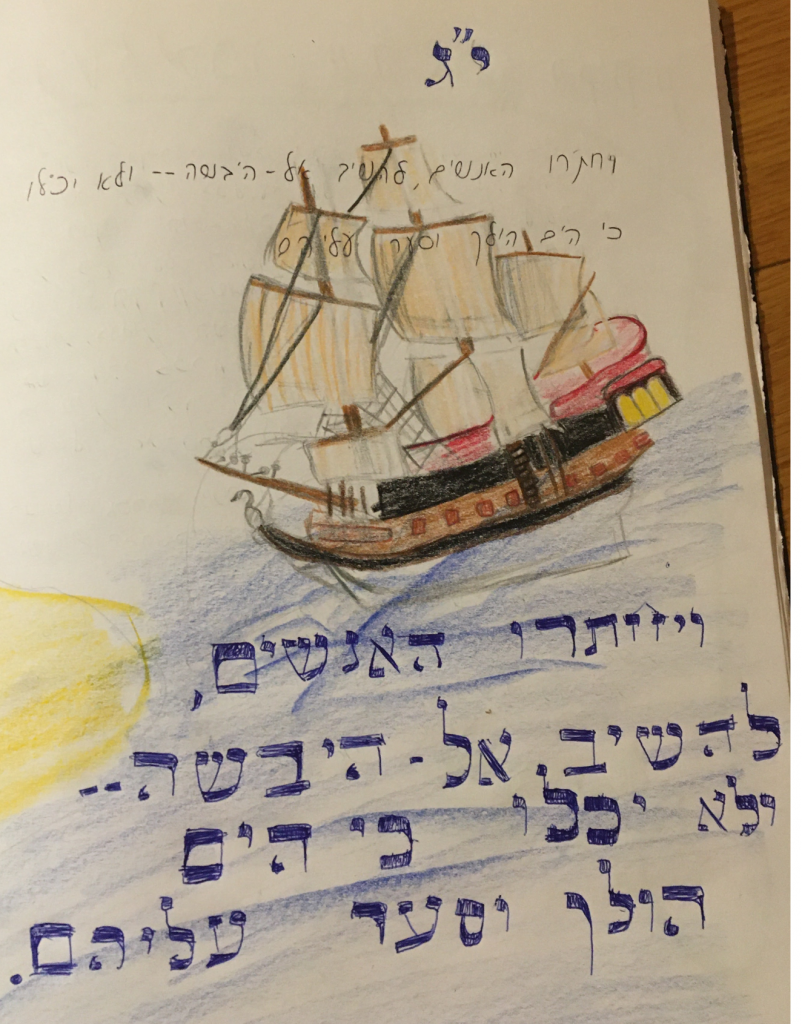 י"ג
ויחתרו האנשים, להשיב אל-היבשה -- ולא יכלו
כי הים הולך וסער עליהם
ויחתרו האנשים,
להשיב, אל-היבשה--
ולא יכלו כי הים
הולך וסער עליהם.